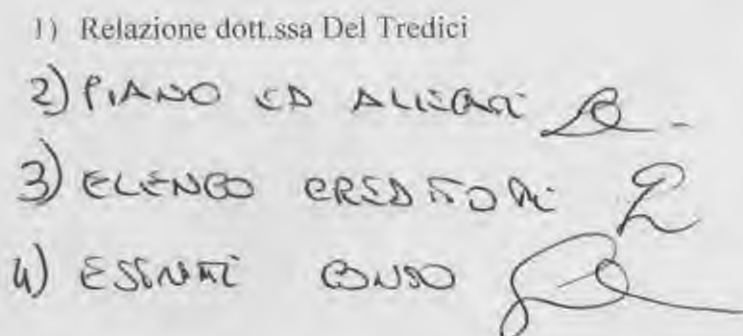 1) Relazione dott.ssa Del Tredici
2) PIANO ED ALLEGATI
3) ELENCO CREDITORI
4) ESTRATTI CONTO